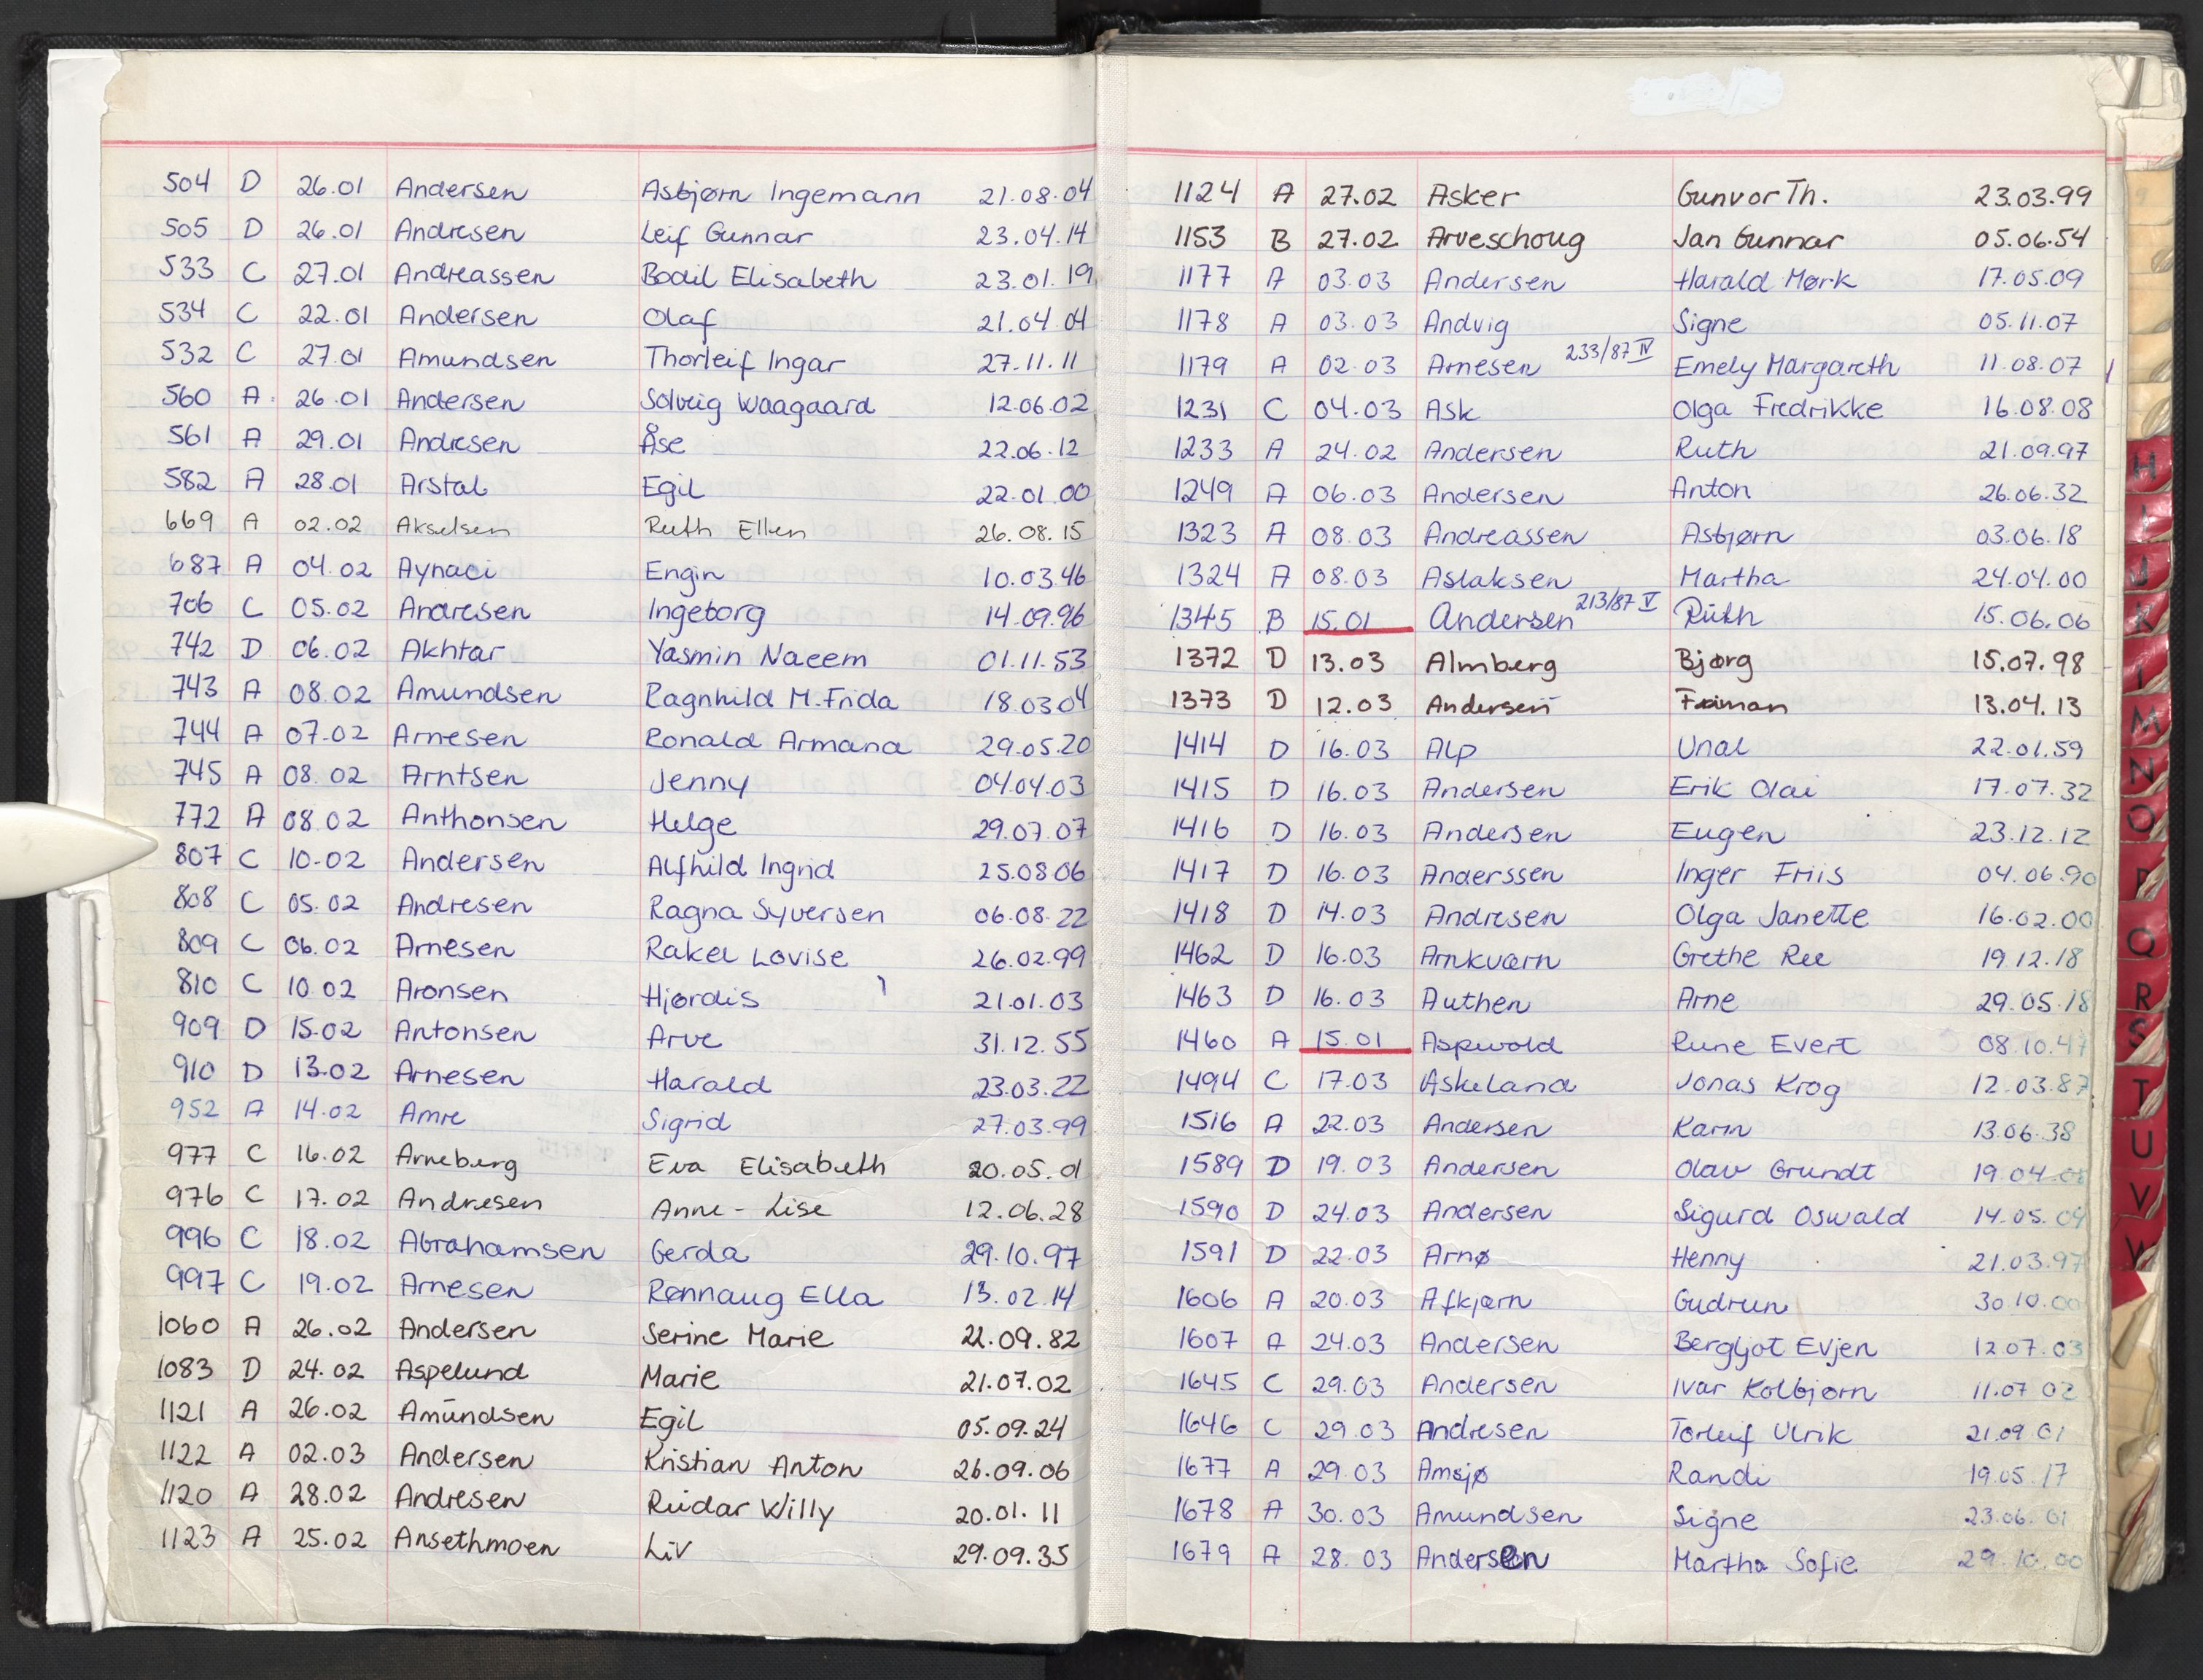 504 D 26.01 Andersen Asbjørn Ingemann 21.08.04
505 D 26.01 Andresen Leif Gunnar 23.04.14
533 C 27.01 Andreassen Bodil Elisabeth 23.01.19
534 C 22.01 Andersen Olaf 21.04.04
532 C 27.01 Amundsen Thorleif Ingar 27.11.11
560 A 26.01 Andersen Solveig Waagaard 12.06.02
561 A 29.01 Andresen Åse 22.06.12
582 A 28.01 Arstal Egil 22.01.00
669 A 02.02 Akselsen Ruth Ellen 26.08.15
687 A 04.02 Aynaci Engin 10.03.46
706 C 05.02 Andresen Ingeborg 14.09.96
742 D 06.02 Akhtar Yasmin Naeem 01.11.53
743 A 08.02 Amundsen Ragnhild M.Frida 18.03.04
744 A 07.02 Arnesen Ronald Armand 29.05.20
745 A 08.02 Arntsen Jenny 04.04.03
772 A 08.02 Anthonsen Helge 29.07.07
807 C 10-02 Andersen Alfhild Ingrid 25.08.06
808 C 05.02 Andresen Ragna Syversen 06.08.22
809 C 06.02 Arnesen Rakel Lovise 26.02.99
810 C 10.02 Aronsen Hjørdis 21.01.03
909 D 15.02 Antonsen Arve 31.12.55
910 D 13.02 Arnesen Harald 23.03.22
952 A 14.02 Amre Sigrid 27.03.99
977 C 16.02 Arneberg Eva Elisabeth 20.05.01
976 C 17.02 Andresen Anne-Lise 12.06.28
996 C 18.02 Abrahamsen Gerda 29.10.97
997 C 19.02 Arnesen Rønnaug Ella 13.02.14
1060 A 26.02 Andersen Serine Marie 22.09.82
1083 D 24.02 Aspelund Marie 21.07.02
1121 A 26.02 Amundsen Egil 05.09.24
1122 A 02.03 Andersen Kristian Anton 26.09.06
1120 A 28.02 Andresen Reidar Willy 20.01.11
1123 A 25.02 Ansethmoen Liv 29.09.35
1124 A 27.02 Asker Gunvor Th. 23.03.99
1153 B 27.02 Arveschoug Jan Gunnar 05.06.54
1177 A 03.03 Andersen Harald Mørk 17.05.09
1178 A 03.03 Andvig Signe 05.11.07
1179 A 02.03 Arnesen 233/87 IV Emely Margareth 11.08.07
1231 C 04.03 Ask Olga Fredrikke 16.08.08
1233 A 24.02 Andersen Ruth 21.09.97
1249 A 06.03 Andersen Anton 26.06.32
1323 A 08.03 Andreassen Asbjørn 03.06.18
1324 A 08.03 Aslaksen Martha 24.04.00
1345 B 15.01 Andersen 213/87 V Ruth 15.06.06
1372 D 13.03 Almberg Bjørg 15.07.98
1373 D 12.03 Andersen 13.04.13
1414 D 16.03 Alp Unal 22.01.59
1415 D 16.03 Andersen Erik Olai 17.07.32
1416 D 16.03 Andersen Eugen 23.12.12
1417 D 16.03 Anderssen Inger Friis 04.06.90
1418 D 14.03 Andresen Olga Janette 16.02.00
1462 D 16.03 Arnkværn Grethe Ree 19.12.18
1463 D 16.03 Authen Arne 29.05.18
1460 A 15.01 Aspwold Rune Evert 08.10.47
1494 C 17.03 Askeland Jonas Krog 12.03.87
1516 A 22.03 Andersen Karin 13.06.38
1589 D 19.03 Andersen Olav Grundt 19.04
1590 D 24.03 Andersen Sigurd Oswald 14.05.04
1591 D 22.03 Arnø Henny 21.03.97
1606 A 20.03 Afkjærn Gudrun 30.10.00
1607 A 24.03 Andersen Bergljot Evjen 12.07.03
1645 C 29.03 Andersen Ivar Kolbjørn 11.07.02
1646 C 29.03 Andresen Torleif Ulrik 21.09.01
1677 A 29.03 Amsjø Randi 19.05.17
1678 A 30.03 Amundsen Signe 23.06.01
1679 A 28.03 Andersen Martha Sofie 29.10.00
H
I
J
K
M
N
O
P
Q
R
S
T
U
V